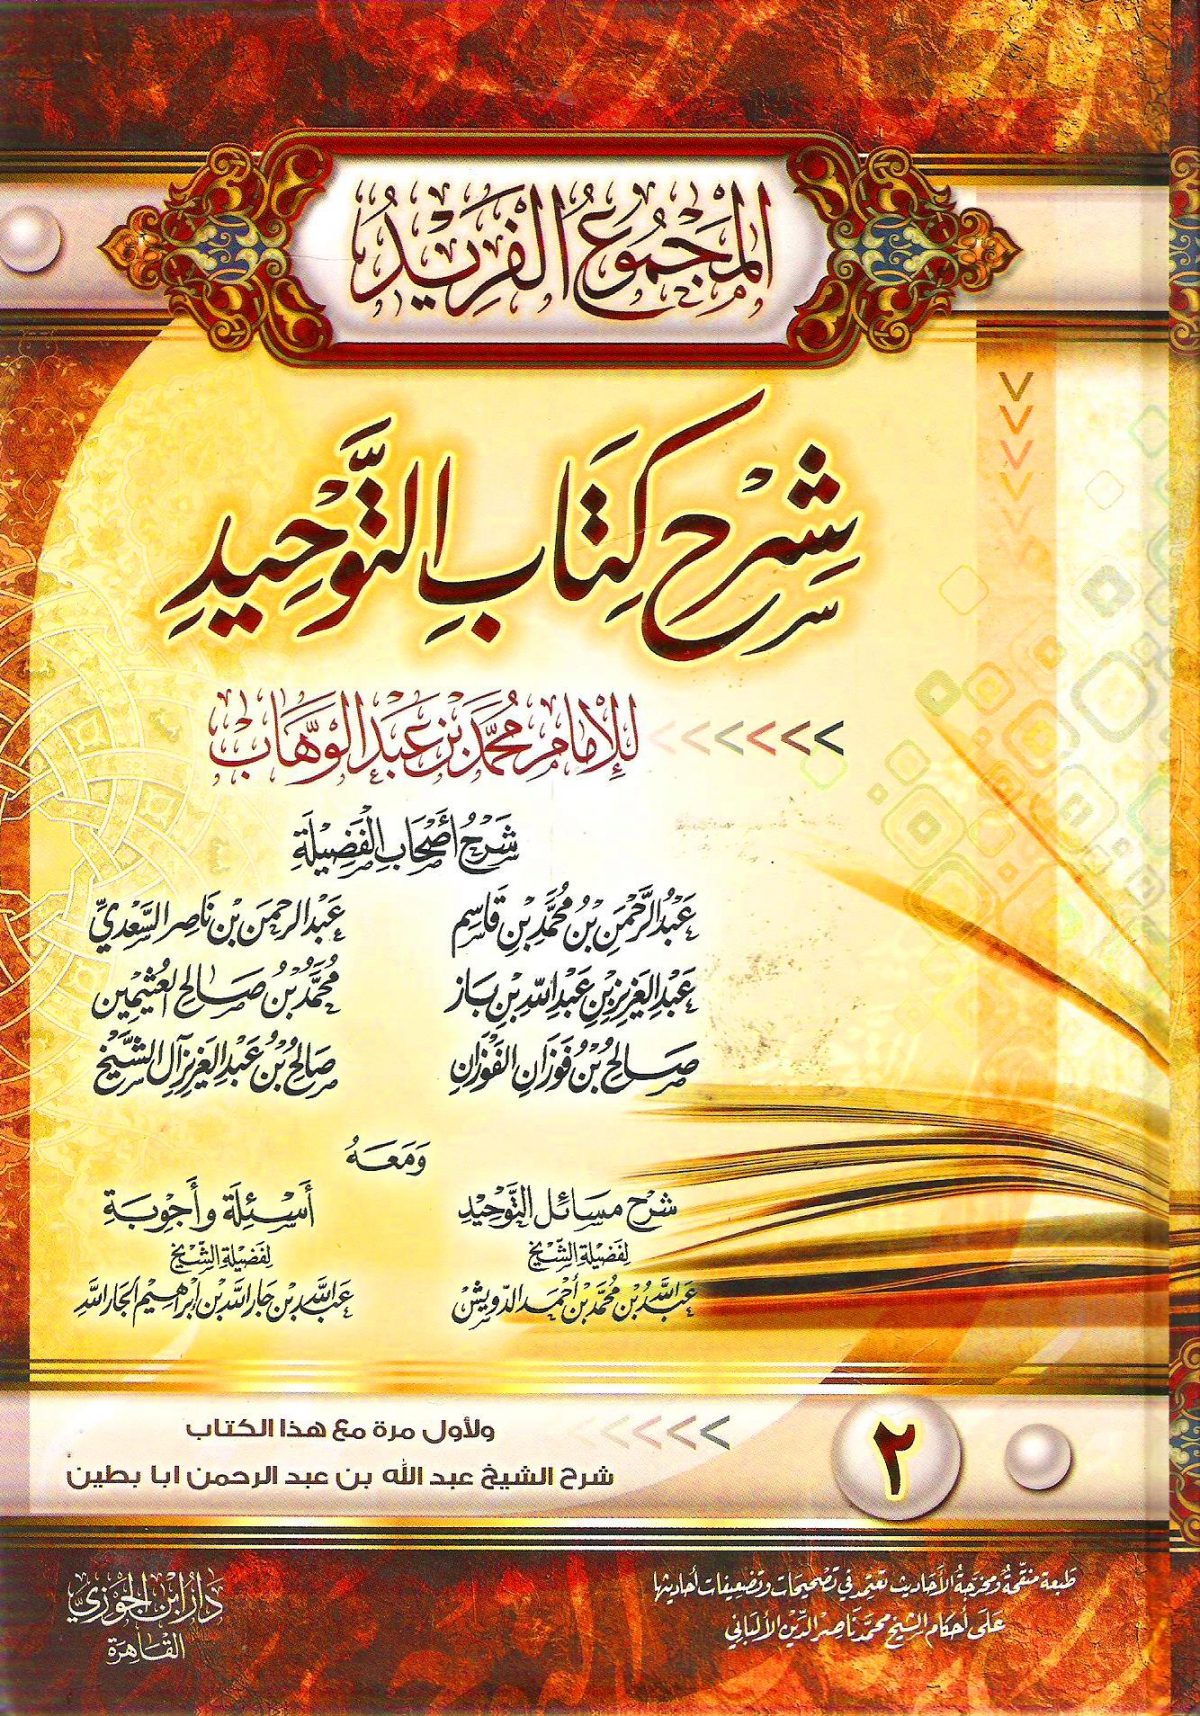 المَجْمُوعُ الفَرِيْدُ
شَرْح كِتَابِ التَّوَحِيْدِ
لِلإِمَامِ مُحَمَّدِ بْنِ عَبْدِ الْوَهَّابِ
شَرْحُ أَصْحَابِ الْفَضِيلَةِ
عَبْدُ الرَّحْمَنِ بْنُ مُحَمَّدِ بْنِ قَاسِم
عَبْد الرحمن بْن نَاصِر السَّعْدِيِّ
عَبْدِ الْعَزِيزِ بْنِ عَبْدِ اللَّهِ بْنِ بَاز
مُحَمَّدُ بْنُ صَالِح الْعُثَيْمِين
صَالِحُ بْنُ فَوْزَانِ الفَوْزَانِ
صَالِحُ بْنُ عَبْدِ الْعَزِيزِ آلِ الشَّيْخِ
وَمَعَهُ
شَرْح مَسَائِل التَّوْحِيْدِ
أَسْئِلَة وَأَجْوِبَة
لفَضِيْلَةِ الشَّيْخ
لفَضِيْلَةِ الشَّيْخ
عَبْدُ اللَّهِ بْنُ مُحَمَّدِ بْنِ أَحْمَدَ الدَّوِيْش
عَبْدُ اللَّه بْن جَار اللَّه بْن إِبْرَاهِيْم الْجَار اللَّه
ولأول مرة مع هذا الكتاب
شرح الشيخ عبد الله بن عبد الرحمن ابا بطين
٢
طبعة منقحة ومخرجة الأحاديث تعتمد في تصحيحات وتضعيفات أحاديثها
على أحكام الشيخ محمد ناصر الدين الألباني
دَارُ ابْنِ الْجَوْزِيّ
القَاهِرَة